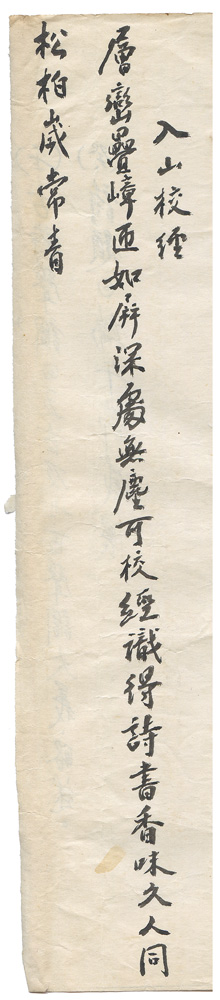 入山校經
層巒疊嶂匝如屏深處無塵可校經識得詩書香味久人同
松柏歲常青